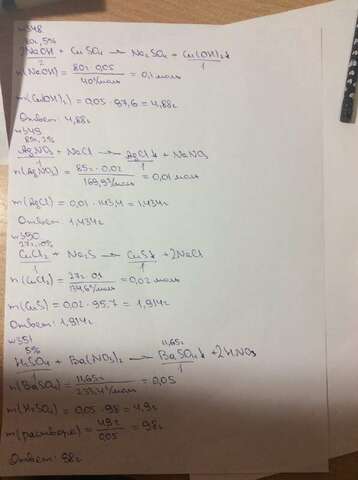 №348
80г, 5%
2NaOH + CuSO₄ → Na₂SO₄ + Cu(OH)₂↓
2 1
n(NaOH) = 80г · 0,05 / 40г/моль = 0,1 моль
m(Cu(OH)₂) = 0,05 · 97,6 = 4,88г
Ответ: 4,88г
№349
85г, 2%
AgNO₃ + NaCl → AgCl↓ + NaNO₃
1 1
n(AgNO₃) = 85г · 0,02 / 169,9г/моль = 0,01 моль
m(AgCl) = 0,01 · 143,4 = 1,434г
Ответ: 1,434г
№350
27г, 10%
CuCl₂ + Na₂S → CuS↓ + 2NaCl
1 1
n(CuCl₂) = 27г · 0,1 / 134,6г/моль = 0,02 моль
m(CuS) = 0,02 · 95,7 = 1,914г
Ответ: 1,914г
№351
5% 11,65г
H₂SO₄ + Ba(NO₃)₂ → BaSO₄↓ + 2HNO₃
1 1
n(BaSO₄) = 11,65г / 233,4г/моль = 0,05
m(H₂SO₄) = 0,05 · 98 = 4,9г
m(раствора) = 4,9г / 0,05 = 98г
Ответ: 98г